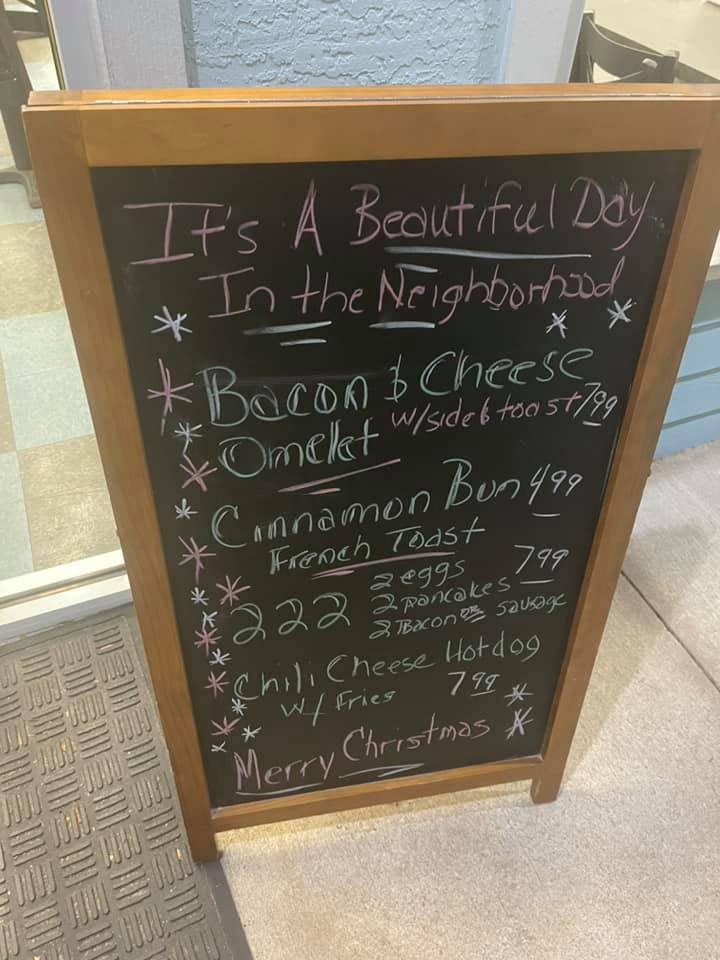 It's A Beautiful Day
In the Neighborhood
Bacon & Cheese
Omellet w/side & toast 7.99
Cinnamon Bun 4.99
French Toast
222 2 eggs 7.99
2 pancakes
2 Bacon or sausage
Chili Cheese Hotdog
w/ Fries 7.99
Merry Christmas